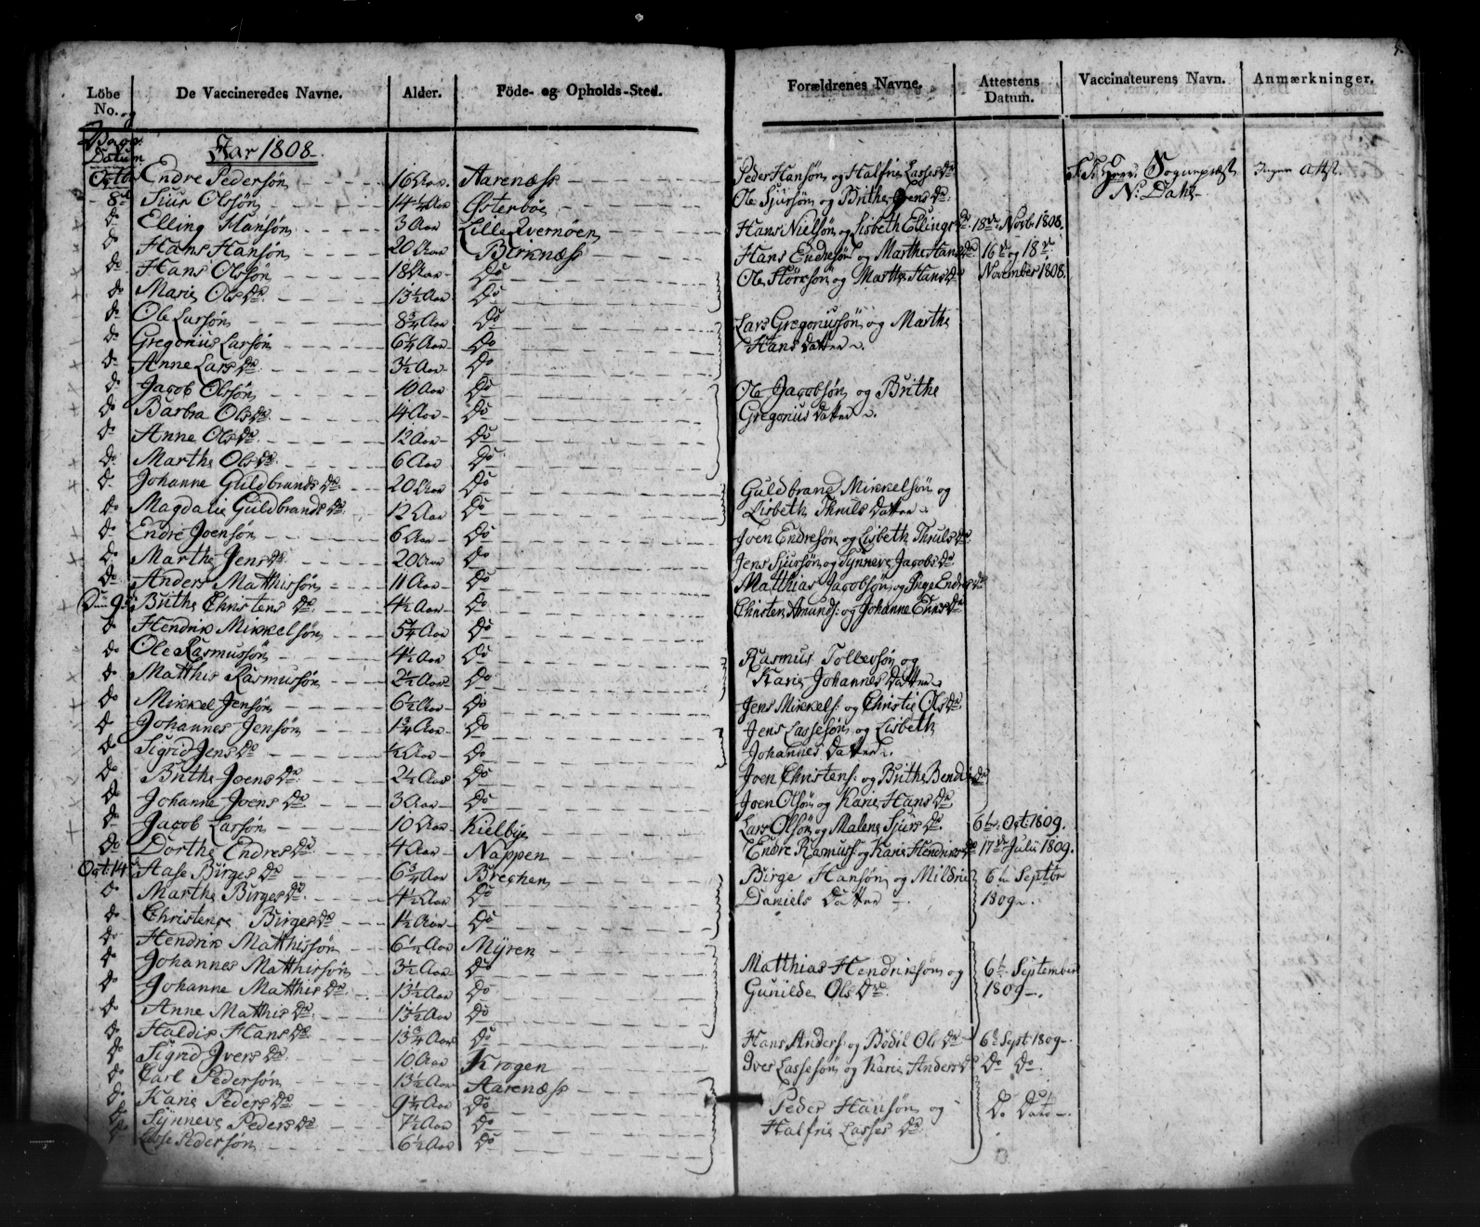 Löbe No. De Vaccineredes Navne. Alder. Föde- og Opholds-Sted. Forældrenes Navne. Attestens Datum. Vaccinateurens Navn. Anmærkninger.
og
Datum Aar 1808
Octbr Endre Pedersön 16 Aar Aarenæss Peder Hansön og Halfrie Lasses Dr. N: Dahl
8de Siur Olsön 14 1/4 Aar Østerböe Ole Sjursön og Brithe
do Elling Hansön 3 Aar Lille Qvernöen Hans Nielsön og Lisbeth Ellings Dr. 18de Novb. 1808.
do Hans Hansön 20 Aar Birknæss Hans Endresön og Marthe Hans Dr. 16de og 18de
do Hans Olsön 18 Aar Do Ole Störksön og Marthe Hans Dr. November 1808.
do Marie Ols Dr. 13 1/2 Aar Do
do Ole Larsön 8 3/4 Aar Do Lars Gregoriussön og Marthe
do Gregorius Larsön 6 1/4 Aar Do Hans Datter
do Anne Lars Dr. 3 1/2 Aar Do
do Jacob Olsön 10 Aar Do Ole Jacobsön og Brithe
do Barbra Ols Dr. 4 Aar Do Gregorius Datter
do Anne Ols Dr. 12 Aar Do
do Marthe Ols Dr. 6 Aar Do
do Johanne Guldbrands Dr. 20 Aar Do Guldbrand Mikkelsön og
do Magdalie Guldbrands Dr. 12 Aar Do Lisbeth Thruls Datter
do Endre Joensön 6 Aar Do Joen Endresön og Lisbeth Thruls Dr.
do Marthe Jens Dr. 20 Aar Do Jens Sjursön og Synneve Jacobs Dr.
do Anders Matthissön 11 Aar Do Matthias Jacobsön og Endres Dr.
Brithe Christens Dr. 4 1/2 Aar Do Christen Amunds: og Johanne Dr.
do Hendrik Mikkelsön 5 1/4 Aar Do
do Ole Rasmussön 4 1/2 Aar Do Rasmus Tollevsön og
do Matthis Rasmussön 2 1/2 Aar Do Karie Johannes Datter
do Mikkel Jensön 6 1/2 Aar Do Jens Mikkels: og Christie Ols Dr.
do Johannes Jensön 1 3/4 Aar Do Jens Lassesön og Lisbeth
do Sigrid Jens Dr. 1/2 Aar Do Johannes Datter
do Brithe Joens Dr. 2 1/2 Aar Do Joen Christens: og Brithe Dr.
do Johanne Joens Dr. 3 Aar Do Joen Olsön og Karie Hans Dr.
do Jacob Larsön 10 Aar Kielbye Lars Olsön og Malene Sjurs Dr. 6te Oct. 1809.
do Dorthe Endres Dr. 4 Aar Nappen Endre Rasmuss: og Karie Hendriks Dr. 17de Julii 1809.
Oct. 14 Aase Birges Dr. 6 3/4 Aar Brechen Birge Hansön og Mildrie 6te Septbr
do Marthe Birges Dr. 4 1/2 Aar Do Daniels Datter 1809
do Christense Birges Dr. 1 1/2 Aar Do
do Hendrik Matthissön 6 1/2 Aar Myren
do Johannes Matthissön 3 1/2 Aar Do Matthias Hendriksön og 6te September
do Johanne Matthis Dr. 13 1/2 Aar Do Gunilde Ols Dr. 1809
do Anne Matthis Dr. 15 1/2 Aar Do
do Haldis Hans Dr. 13 3/4 Aar Do Hans Anders: og Bodil Ols Dr. 6te Sept. 1809
do Sigrid Ivers Dr. 10 Aar Krogen Iver Lassesön og Karie Anders Dr. Do Do
do Carl Pedersön 13 1/2 Aar Aarenæss
do Karie Peders Dr. 9 1/4 Aar Do Peder Hansön og Do Dato
do Synneve Peders Dr. 7 1/2 Aar Do Halfrie Lasses Dr.
do Lasse Pedersön 6 1/2 Aar Do